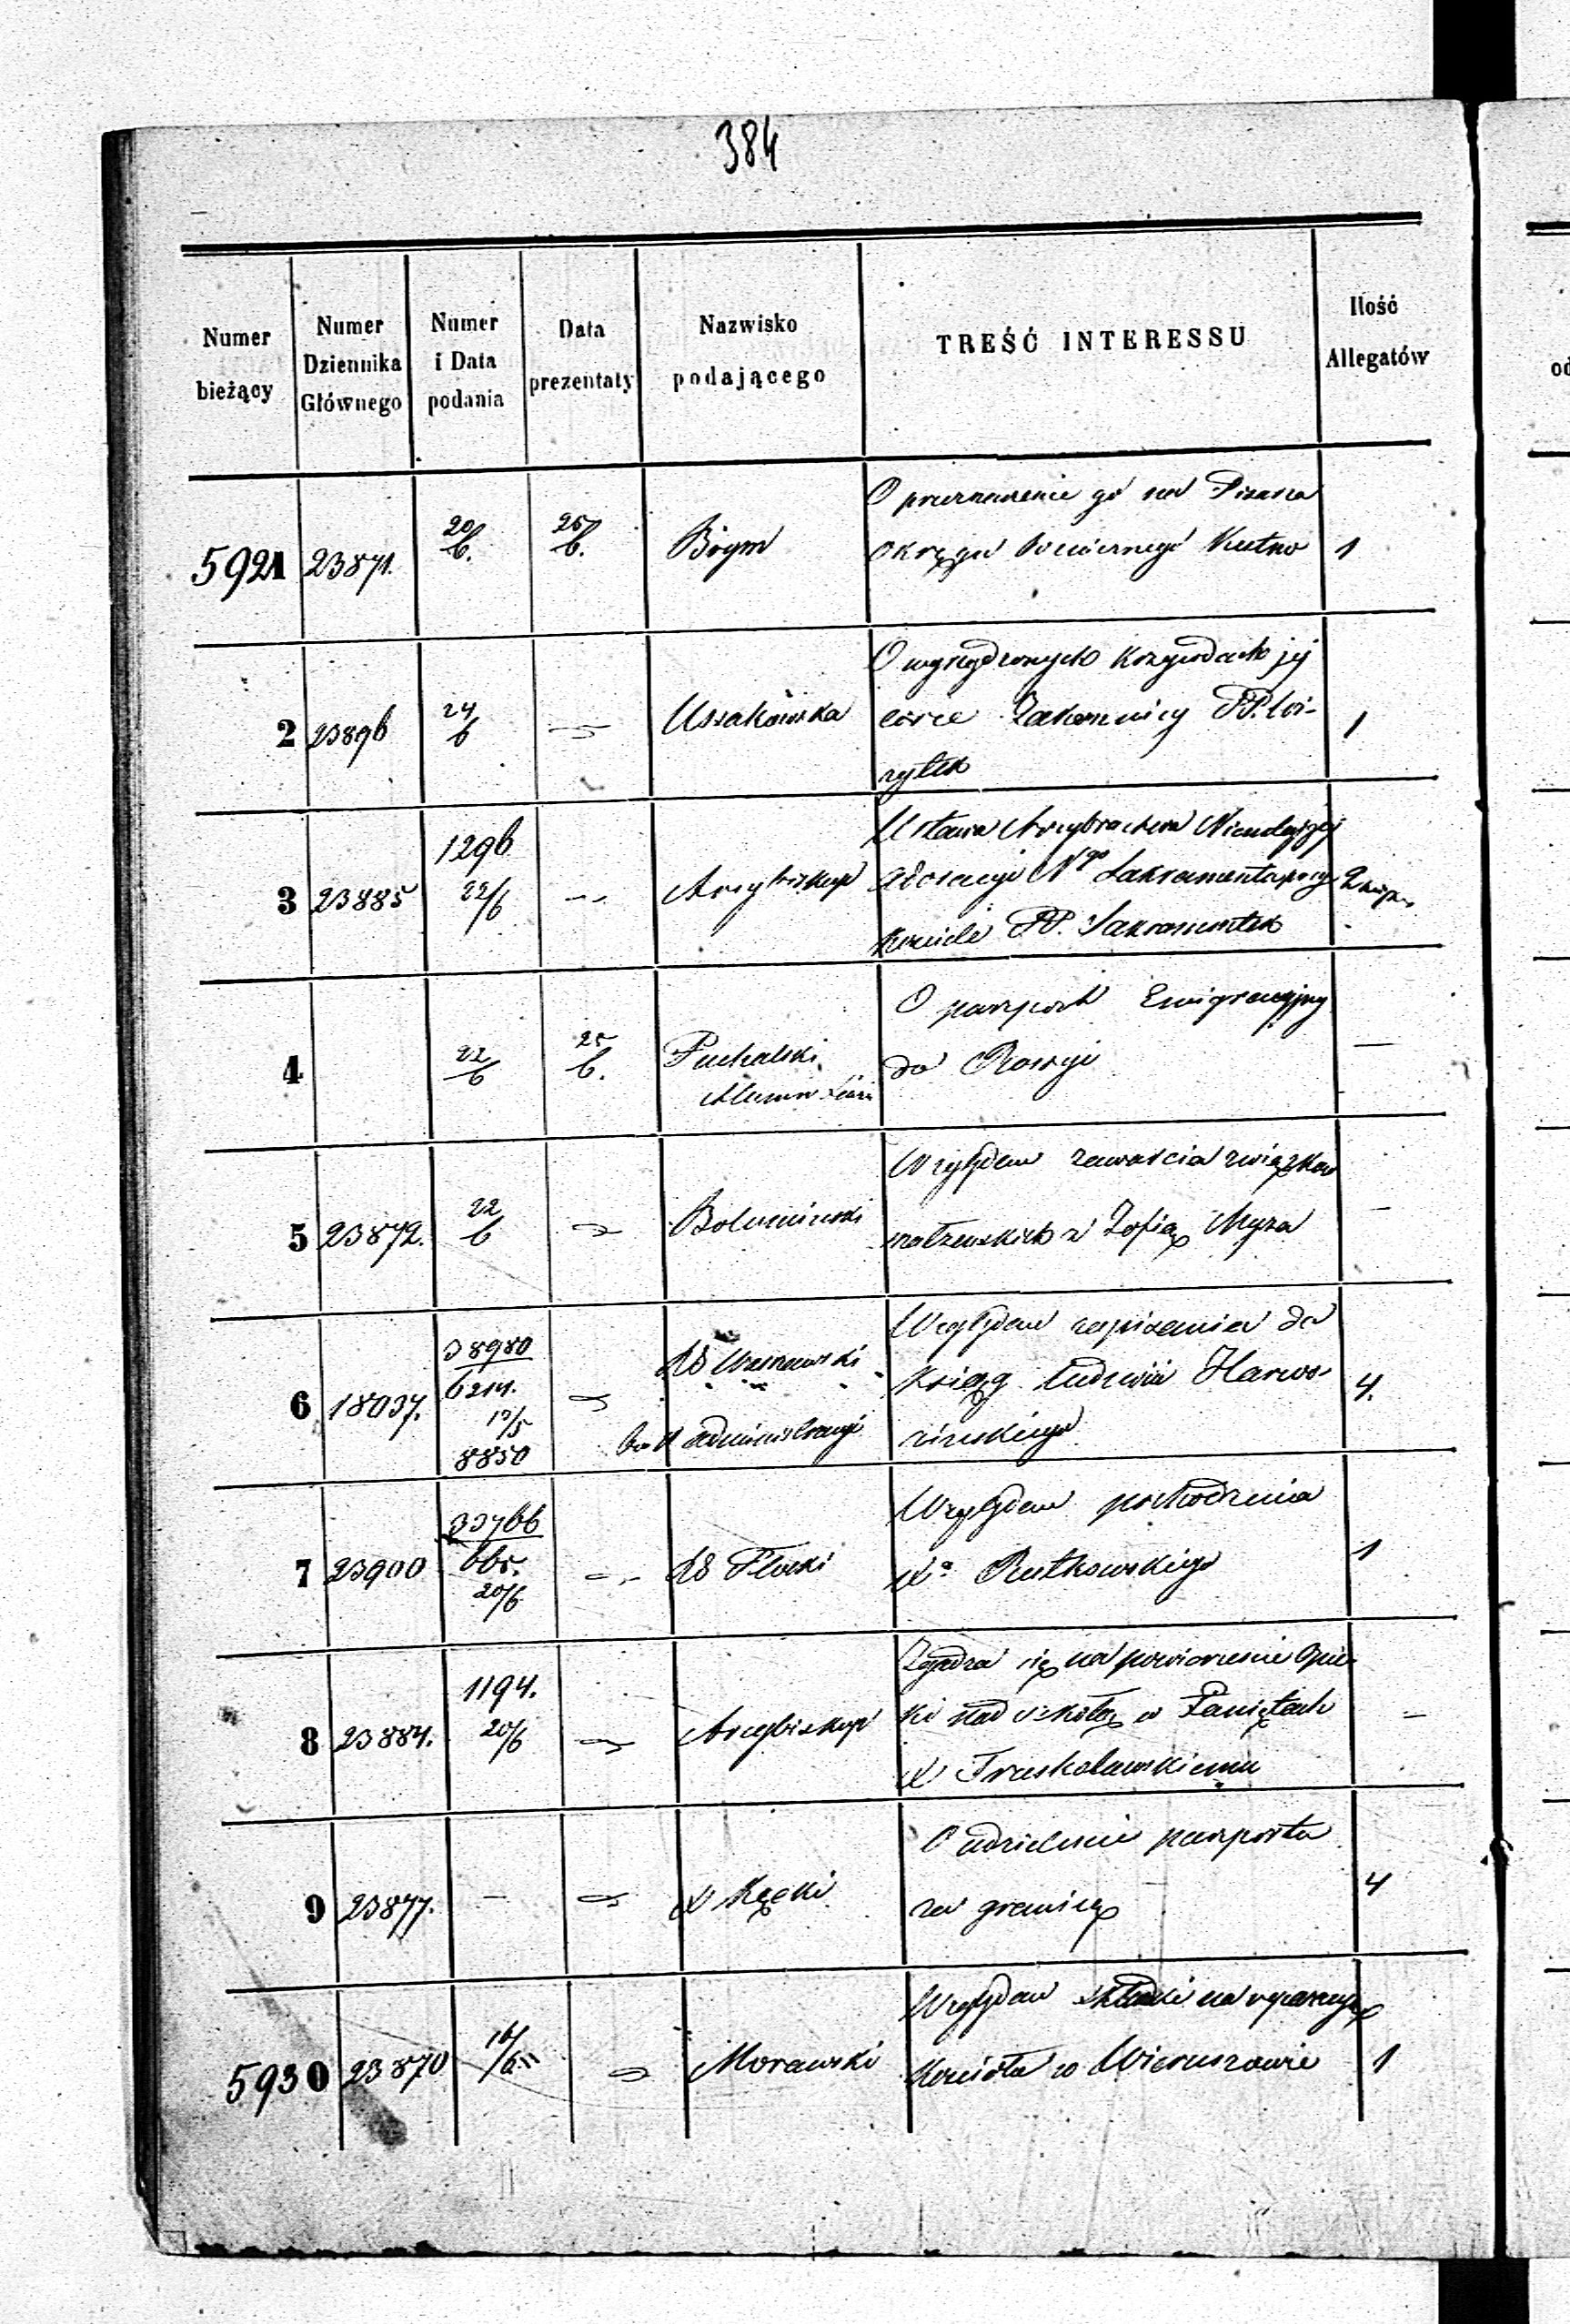 384
Numer bieżący | Numer Dziennika Głównego | Numer i Data podania | Data prezentaty | Nazwisko podającego | TREŚĆ INTERESSU | Ilość Allegatów
5921 | 23871. | 20/6. | 25/6. | Brym | O przeznaczenie go na Pisarza
okręgu Kutno | 1
2 | 23896 | 24/6 | Ussakowska | O wyrządzonych krzywdach jej
córce Zakonnicy PP. Wi-
zytek | 1
3 | 23885 | 1296 22/6 | Arcybiskup | Ustawa Arcybractwa Nieustającej
adoracyi Ngo Sakramentu przy
kościele PP. Sakramentek | 2
4 | 22/6 | 25/6. | Puchalski | O paszport Emigracyjny
do Rossyi | —
5 | 23872. | 22/6 | Względem zawarcia związków
małżeńskich z Zofią Myza | —
6 | 18037. | 38980 6214. 10/5 8850 | RG Warszawski
administracyi | Względem zapisania do
ksiąg ludności | 4.
7 | 23900 | 33766 665. 20/6 | RG Płocki | Względem pochodzenia
Xa Rutkowskiego | 1
8 | 23884. | 1194. 20/6 | Arcybiskup | Zgadza się na powierzenie Opie-
ki nad szkołą w
X Truskolawskiemu | —
9 | 23877. | — | X Kęcki | O udzielenie paszportu
za granicę | 4
5930 | 23870 | 16/6 | Morawski | Względem składki na reparacyą
kościoła w Wieruszowie | 1